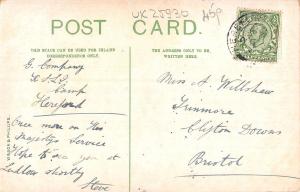 UK 25930
45p
POST CARD.
THIS SPACE CAN BE USED FOR INLAND
CORRESPONDENCE ONLY.
THE ADDRESS ONLY TO BE
WRITTEN HERE
G. Company
Camp
Hereford
Once more on His
Majestys Service
Hope to see you at
Ludlow shortly
Steve
Miss A. Willshaw
Trinmore
Clifton Downs
Bristol